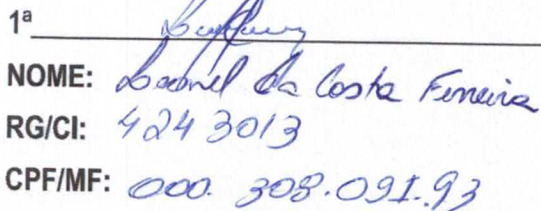 1ª
NOME: Leonel da Costa Ferreira
RG/CI: 4243013
CPF/MF: 000. 308.091.93